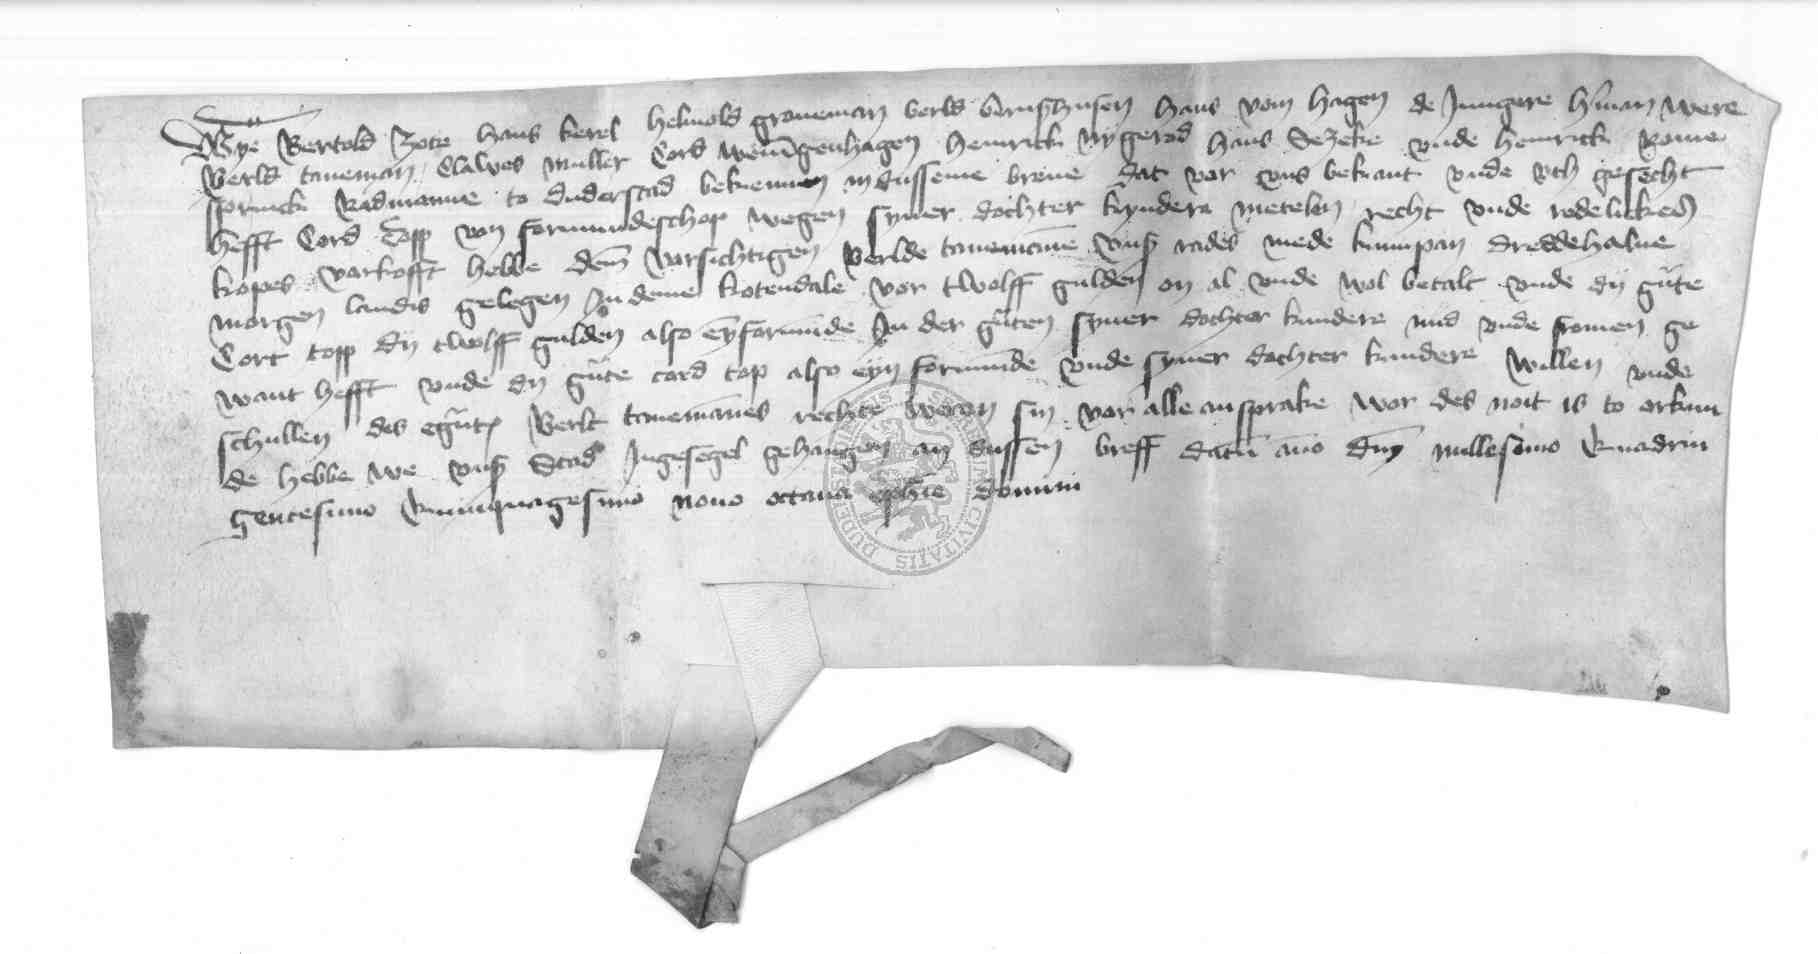 Wye Bertold Zote hans kerel helmold groneman berld bernßhusen hans vom hagen de Jungere hman were
Berld taneman Clawes muller Cord wenigenhagen heinrick nygerod hans Sezeke vnde heinrick
sprinck Radmanne to duderstad bekennen in dusseme breue dat vor vns bekant vnde vth gesecht
hefft Cord topp von formundeschop wegen syner dochter kyndern metelen recht vnde redelicken
kopes vorkofft hebbe dem vorsichtigen berlde tanemane vnß rades mede kumpan dreddehalue
morgen landis gelegen In deme kotendale vor twolff gulden on al vnde wol betalt vnde dy gute
Cort topp dy twolff gulden also eyn formunde In der guten syner dochter kindere nud vnde fromen ge
want hefft vnde dy gute cord top also eyn formunde vnde syner dochter kindere willen vnde
schullen des Berlt tanemanes rechte weren sin vor alle ansprake wor des noit is to orkun
de hebbe we vnß Stad Ingesegel gehangen an dussen breff datu ano dny millesimo Quadrin
gentesimo Quinquagesimo nono octaua ephie domini
SECRETUM CIVITATIS DUDERSTADENSIS